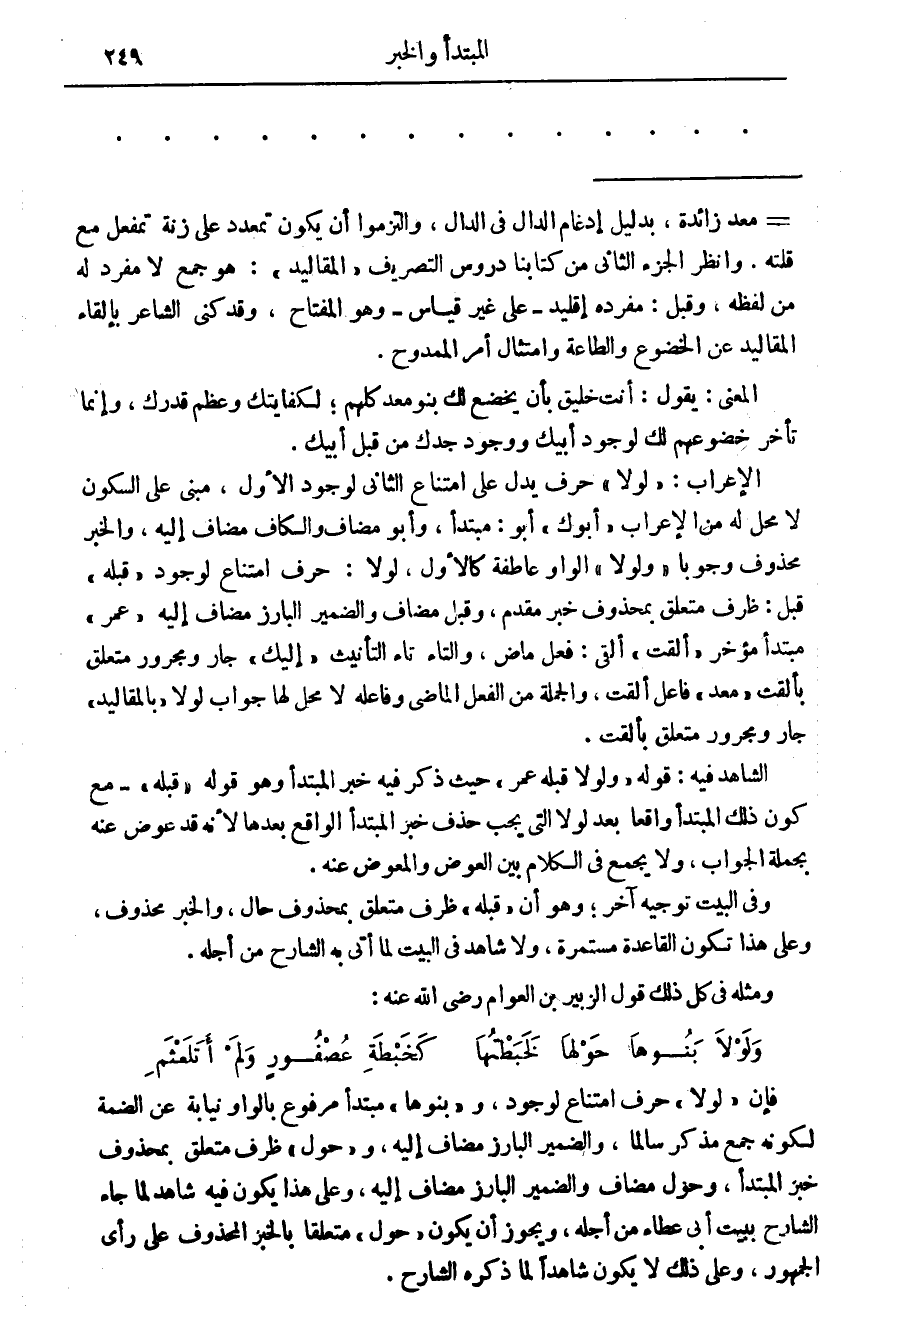 المبتدأ والخبر ٢٤٩
. . . . . . . . . . . . . .
= معد زائدة ، بدليل إدغام الدال فى الدال ، والتزموا أن يكون تمعدد على زنة تمفعل مع
قلته . وانظر الجزء الثانى من كتابنا دروس التصريف « المقاليد » : هو جمع لا مفرد له
من لفظه ، وقيل : مفرده إقليد ــ على غير قياس ــ وهو المفتاح ، وقد كنى الشاعر بإلقاء
المقاليد عن الخضوع والطاعة وامتثال أمر الممدوح .
المعنى : يقول : أنت خليق بأن يخضع لك بنو معد كلهم ؛ لكفايتك وعظم قدرك ، وإنما
تأخر خضوعهم لك لوجود أبيك ووجود جدك من قبل أبيك .
الإعراب : « لولا » حرف يدل على امتناع الثانى لوجود الأول ، مبنى على السكون
لا محل له من الإعراب « أبوك » أبو : مبتدأ ، وأبو مضاف والكاف مضاف إليه ، والخبر
محذوف وجوبا « ولولا » الواو عاطفة كالأول ، لولا : حرف امتناع لوجود « قبله »
قبل : ظرف متعلق بمحذوف خبر مقدم ، وقبل مضاف والضمير البارز مضاف إليه « عمر »
مبتدأ مؤخر « ألقت » ألقى : فعل ماض ، والتاء تاء التأنيث « إليك » جار ومجرور متعلق
بألقت « معد » فاعل ألقت ، والجملة من الفعل الماضى وفاعله لا محل لها جواب لولا « بالمقاليد »
جار ومجرور متعلق بألقت .
الشاهد فيه : قوله « ولولا قبله عمر » حيث ذكر فيه خبر المبتدأ وهو قوله « قبله » ــ مع
كون ذلك المبتدأ واقعا بعد لولا التى يجب حذف خبر المبتدأ الواقع بعدها لأنه قد عوض عنه
بجملة الجواب ، ولا يجمع فى الكلام بين العوض والمعوض عنه .
وفى البيت توجيه آخر ؛ وهو أن « قبله » ظرف متعلق بمحذوف حال ، والخبر محذوف ،
وعلى هذا تكون القاعدة مستمرة ، ولا شاهد فى البيت لما أتى به الشارح من أجله .
ومثله فى كل ذلك قول الزبير بن العوام رضى الله عنه :
وَلَوْلاَ بَنُــوهاَ حَوْلَهاَ لَخَبَطْتُهاَ كَخَبْطَةِ عُصْفُــورٍ وَلَمْ أَتَلَعْثَمِ
فإن « لولا » حرف امتناع لوجود ، و « بنوها » مبتدأ مرفوع بالواو نيابة عن الضمة
لكونه جمع مذكر سالما ، والضمير البارز مضاف إليه ، و « حول » ظرف متعلق بمحذوف
خبر المبتدأ ، وحول مضاف والضمير البارز مضاف إليه ، وعلى هذا يكون فيه شاهد لما جاء
الشارح ببيت أبى عطاء من أجله ، ويجوز أن يكون « حول » متعلقا بالخبر المحذوف على رأى
الجمهور ، وعلى ذلك لا يكون شاهداً لما ذكره الشارح .